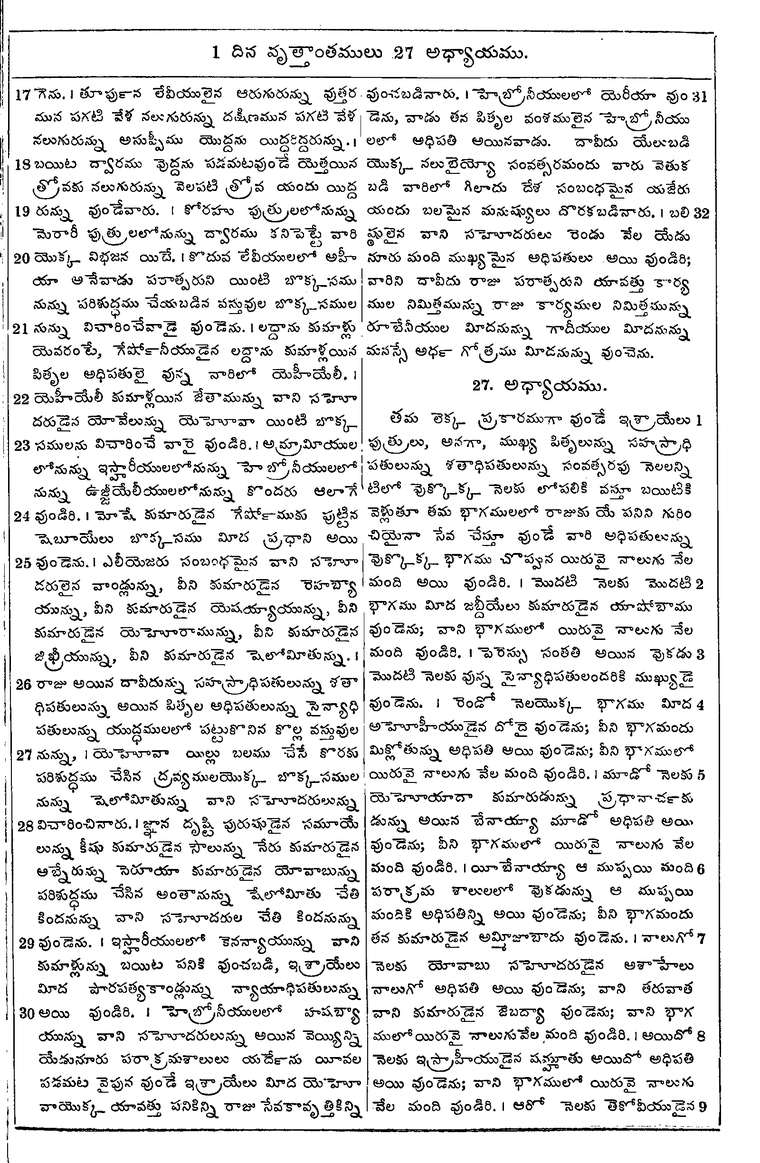 1 దిన వృత్తాంతములు 27 అధ్యాయము.
17 గెను. । తూర్పున లేవీయులైన ఆరుగురున్ను వుత్తర
మున పగటి వేళ నలుగురున్ను దక్షిణమున పగటి వేళ
నలుగురున్ను అసుప్పీము యొద్దను యిద్దరిద్దరున్ను. ।
18 బయిట ద్వారము వొద్దను పడమటవుండే యెత్తయిన
త్రోవకు నలుగురున్ను వెలపటి త్రోవ యందు యిద్ద
19 రున్ను వుండేవారు. । కోరహు పుత్రులలోనున్ను
మెరారీ పుత్రులలోనున్ను ద్వారము కనిపెట్టే వారి
20 యొక్క విభజన యిదే. । కొదువ లేవీయులలో అహీ
యా అనేవాడు పరాత్పరుని యింటి బొక్కసము
నున్ను పరిశుద్ధము చేయబడిన వస్తువుల బొక్కసముల
21 నున్ను విచారించేవాడై వుండెను. । లద్దాను కుమాళ్లు
యెవరంటే, గేర్షోనీయుడైన లద్దాను కుమాళ్లయిన
పితృల అధిపతులై వున్న వారిలో యెహీయేలీ. ।
22 యెహీయేలీ కుమాళ్లయిన జేతామున్ను వాని సహో
దరుడైన యోవేలున్ను యెహోవా యింటి బొక్క
23 సములను విచారించే వారై వుండిరి. । అమ్రామీయుల
లోనున్ను ఇస్హారీయులలోనున్ను హెబ్రోనీయులలో
నున్ను ఉజ్జీయేలీయులలోనున్ను కొందరు ఆలాగే
24 వుండిరి. । మోషే కుమారుడైన గేర్షోముకు పుట్టిన
షెబూయేలు బొక్కసము మీద ప్రధాని అయి
25 వుండెను. । ఎలీయెజరు సంబంధమైన వాని సహో
దరులైన వాండ్లున్ను, వీని కుమారుడైన రెహబ్యా
యున్ను, వీని కుమారుడైన యెషయ్యాయున్ను, వీని
కుమారుడైన యెహోరామున్ను, వీని కుమారుడైన
జిఖ్రీయున్ను, వీని కుమారుడైన షెలోమీతున్ను. ।
26 రాజు అయిన దావీదున్ను సహస్రాధిపతులున్ను శతా
ధిపతులున్ను అయిన పితృల అధిపతులున్ను సైన్యాధి
పతులున్ను యుద్ధములలో పట్టుకొనిన కొల్ల వస్తువుల
27 నున్ను, । యెహోవా యిల్లు బలము చేసే కొరకు
పరిశుద్ధము చేసిన ద్రవ్యములయొక్క బొక్కసముల
నున్ను షెలోమీతున్ను వాని సహోదరులున్ను
28 విచారించినారు. । జ్ఞాన దృష్టి పురుషుడైన సమూయే
లున్ను కీషు కుమారుడైన సౌలున్ను నేరు కుమారుడైన
అబ్నేరున్ను సెరూయా కుమారుడైన యోవాబున్ను
పరిశుద్ధము చేసిన అంతానున్ను షేలోమీతు చేతి
కిందనున్ను వాని సహోదరుల చేతి కిందనున్ను
29 వుండెను. । ఇస్హారీయులలో కెనన్యాయున్ను వాని
కుమాళ్లున్ను బయిట పనికి వుంచబడి, ఇశ్రాయేలు
మీద పారపత్యకాండ్లున్ను న్యాయాధిపతులున్ను
30 అయి వుండిరి. । హెబ్రోనీయులలో హషబ్యా
యున్ను వాని సహోదరులున్ను అయిన వెయ్యిన్ని
యేడునూరు పరాక్రమశాలులు యర్దేను యీవల
పడమట వైపున వుండే ఇశ్రాయేలు మీద యెహో
వాయొక్క యావత్తు పనికిన్ని రాజు సేవకావృత్తికిన్ని
వుంచబడినారు. । హెబ్రోనీయులలో యెరీయా వుం 31
డెను, వాడు తన పితృల వంశములైన హెబ్రోనీయు
లలో అధిపతి అయినవాడు. దావీదు యేలుబడి
యొక్క నలుబైయ్యో సంవత్సరమందు వారు వెతుక
బడి వారిలో గిలాదు దేశ సంబంధమైన యజేరు
యందు బలమైన మనుష్యులు దొరకబడినారు. । బలి 32
ష్ఠులైన వాని సహోదరులు రెండు వేల యేడు
నూరు మంది ముఖ్యమైన అధిపతులు అయి వుండిరి;
వారిని దావీదు రాజు పరాత్పరుని యావత్తు కార్య
ముల నిమిత్తమున్ను రాజు కార్యముల నిమిత్తమున్ను
రూబేనీయుల మీదనున్ను గాదీయుల మీదనున్ను
మనస్సే అర్ధ గోత్రము మీదనున్ను వుంచెను.
27. అధ్యాయము.
తమ లెక్క ప్రకారముగా వుండే ఇశ్రాయేలు 1
పుత్రులు, అనగా, ముఖ్య పితృలున్ను సహస్రాధి
పతులున్ను శతాధిపతులున్ను సంవత్సరపు నెలలన్ని
టిలో వొక్కొక్క నెలకు లోపలికి వస్తూ బయిటికి
వెళ్లుతూ తమ భాగములలో రాజుకు యే పనిని గురిం
చియైనా సేవ చేస్తూ వుండే వారి అధిపతులున్ను
వొక్కొక్క భాగము చొప్పున యిరువై నాలుగు వేల
మంది అయి వుండిరి. । మొదటి నెలకు మొదటి 2
భాగము మీద జబ్దీయేలు కుమారుడైన యాషోబాము
వుండెను; వాని భాగములో యిరువై నాలుగు వేల
మంది వుండిరి. । పెరెస్సు సంతతి అయిన వొకడు 3
మొదటి నెలకు వున్న సైన్యాధిపతులందరికి ముఖ్యుడై
వుండెను. । రెండో నెలయొక్క భాగము మీద 4
అహోహీయుడైన దోదై వుండెను; వీని భాగమందు
మిక్లోతున్ను అధిపతి అయి వుండెను; వీని భాగములో
యిరువై నాలుగు వేల మంది వుండిరి. । మూడో నెలకు 5
యెహోయాదా కుమారుడున్ను ప్రధానార్చకు
డున్ను అయిన బేనాయ్యా మూడో అధిపతి అయి
వుండెను; వీని భాగములో యిరువై నాలుగు వేల
మంది వుండిరి. । యీ బేనాయ్యా ఆ ముప్పయి మంది 6
పరాక్రమ శాలులలో వొకడున్ను ఆ ముప్పయి
మందికి అధిపతిన్ని అయి వుండెను; వీని భాగమందు
తన కుమారుడైన అమ్మిజాబాదు వుండెను. । నాలుగో 7
నెలకు యోవాబు సహోదరుడైన అశాహేలు
నాలుగో అధిపతి అయి వుండెను; వాని తరువాత
వాని కుమారుడైన జెబద్యా వుండెను; వాని భాగ
ములో యిరువై నాలుగు వేల మంది వుండిరి. । అయిదో 8
నెలకు ఇస్రాహీయుడైన షమ్హూతు అయిదో అధిపతి
అయి వుండెను; వాని భాగములో యిరువై నాలుగు
వేల మంది వుండిరి. । ఆరో నెలకు తెకోవీయుడైన 9